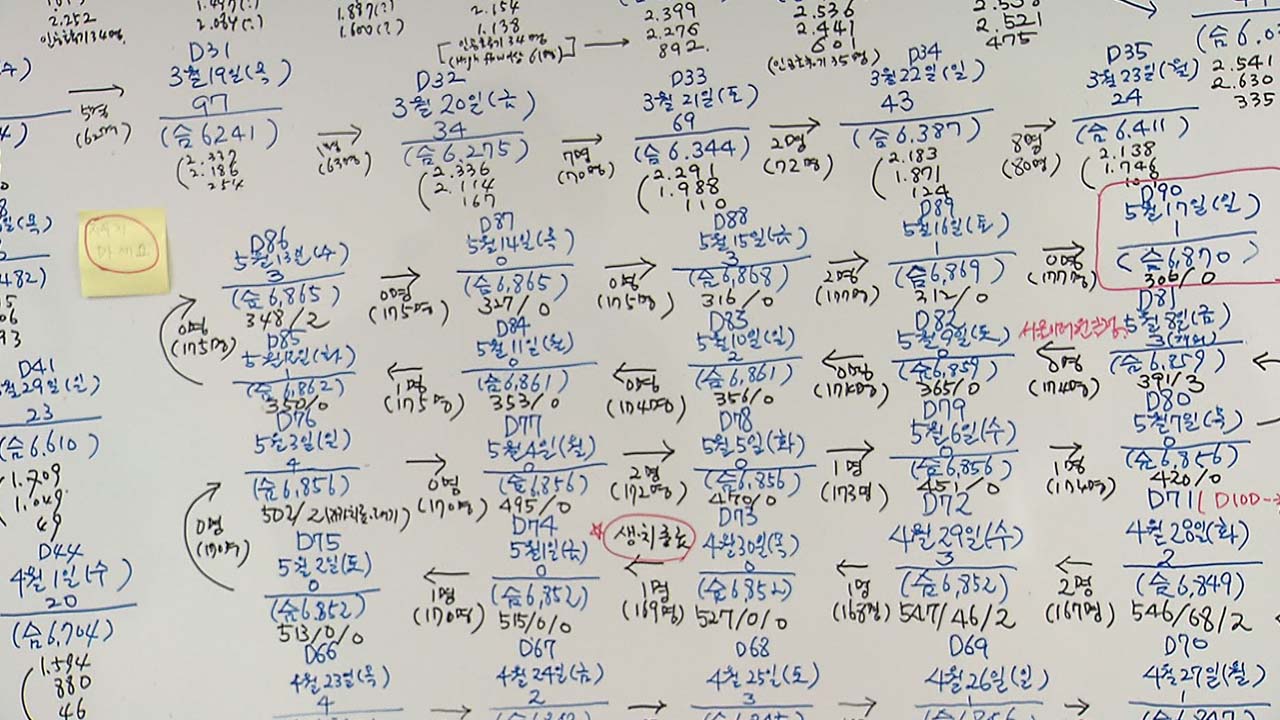 2.252
인공호흡기 34명
2.064(?)
1.887(?)
1.600(?)
2.154
1.138
인공호흡기 34명
2.399
2.276
892
2.536
2.441
601
(인공호흡기 35명)
2.521
475
2.541
2.630
335
D31
3월 19일(목)
97
(숨 6241)
2.186
254
5명
D32
3월 20일(금)
34
(숨 6.275)
2.336
2.114
167
(63명)
D33
3월 21일(토)
69
(숨 6.344)
2.291
1.988
110
7명
(70명)
D34
3월 22일(일)
43
(숨 6.387)
2.183
1.871
124
2명
(72명)
D35
3월 23일(월)
24
(숨 6.411)
2.138
1.746
8명
(80명)
마세요
D86
5월 13일(수)
3
(숨 6,865)
348/2
0명
(175명)
D87
5월 14일(목)
0
(숨 6,865)
327/0
0명
(175명)
D88
5월 15일(금)
3
(숨 6,868)
316/0
0명
(175명)
D89
5월 16일(토)
1
(숨 6,869)
312/0
2명
(177명)
D90
5월 17일(일)
1
(숨 6,870)
306/0
0명
(177명)
D85
5월 12일(화)
1
(숨 6,862)
350/0
1명
(175명)
D84
5월 11일(월)
0
(숨 6,861)
353/0
0명
(174명)
D83
5월 10일(일)
2
(숨 6,861)
356/0
0명
(174명)
D82
5월 9일(토)
0
(숨 6,859)
365/0
0명
(174명)
D81
5월 8일(금)
(숨 6,859)
391/3
D41
3월 29일(일)
23
(숨 6.610)
1.709
1.049
49
D76
5월 3일(일)
4
(숨 6,856)
502/2
0명
(170명)
D77
5월 4일(월)
0
(숨 6,856)
495/0
0명
(170명)
D78
5월 5일(화)
0
(숨 6,856)
470/0
2명
(172명)
D79
5월 6일(수)
0
(숨 6,856)
451/0
1명
(173명)
D80
5월 7일(목)
0
(숨 6,856)
420/0
1명
(174명)
D44
4월 1일(수)
20
(숨 6,704)
1.594
880
46
D75
5월 2일(토)
0
(숨 6.852)
513/0/0
1명
(170명)
D74
5월 1일(금)
0
(숨 6,852)
515/0/0
1명
(169명)
D73
4월 30일(목)
0
(숨 6,852)
527/0/0
1명
(168명)
D72
4월 29일(수)
3
(숨 6,852)
547/46/2
2명
(167명)
D71
4월 28일(화)
2
(숨 6,849)
546/68/2
D66
4월 23일(목)
4
D67
4월 24일(금)
2
D68
4월 25일(토)
3
D69
4월 26일(일)
1
D70
4월 27일(월)
1